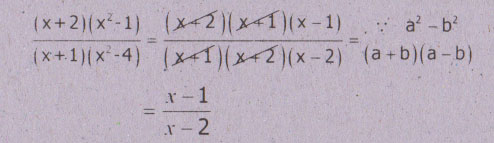 (x+2)(x²-1) / (x+1)(x²-4) = (x+2)(x+1)(x-1) / (x+1)(x+2)(x-2) = ∵ a² - b² (a+b)(a-b)
= x-1 / x-2